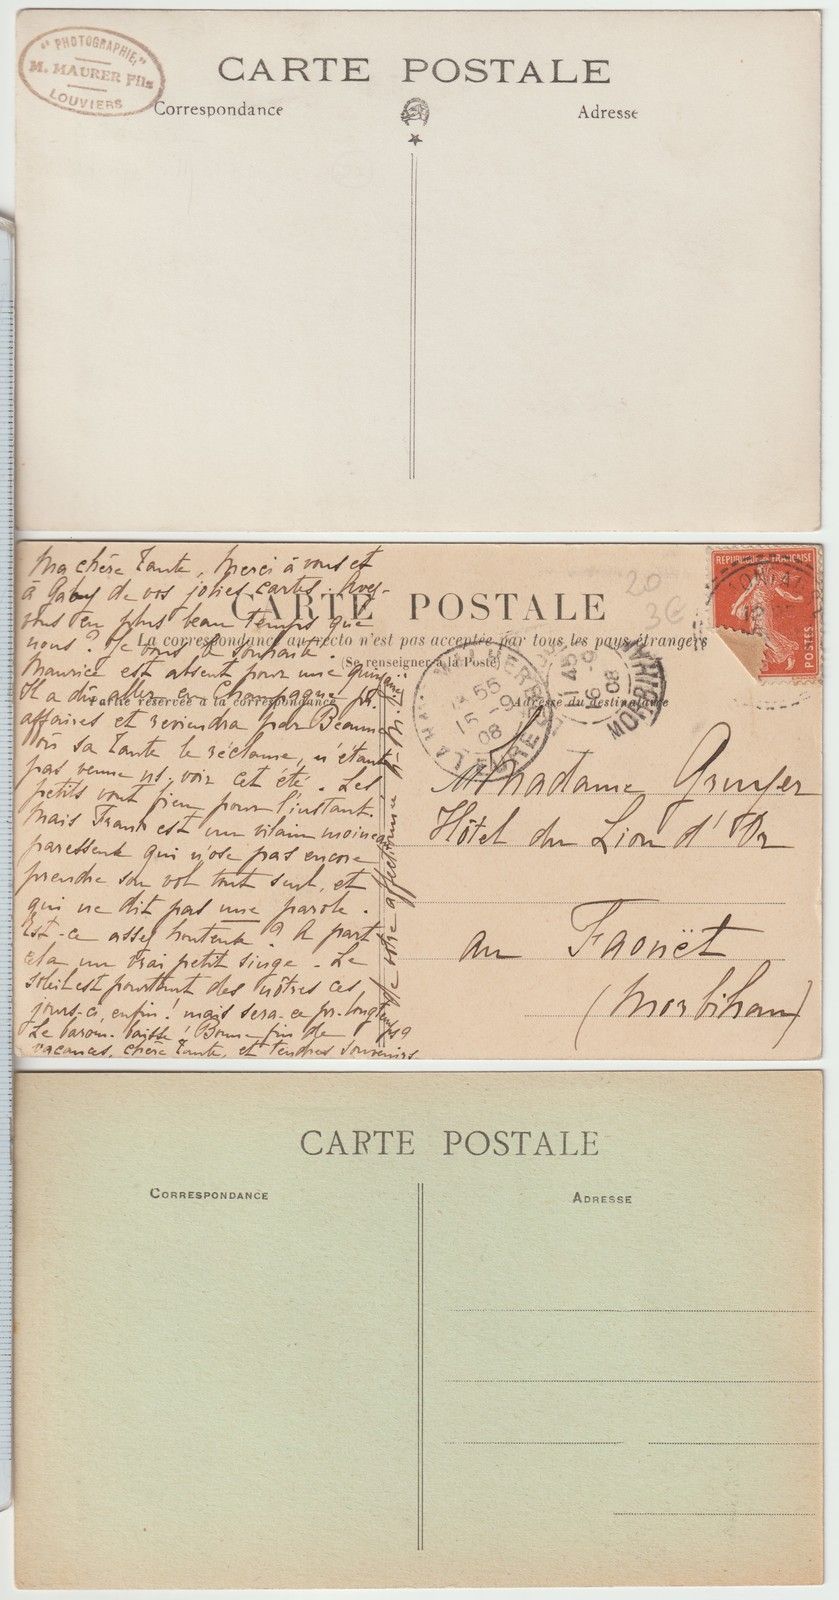 "PHOTOGRAPHIE"
M. MAURER Fils
LOUVIERS
CARTE POSTALE
Correspondance
Adresse
Ma chère Tante, Merci à vous et
à Gaby de vos jolies cartes. Avez-
vous eu plus beau temps que
nous? Je vous le souhaite.
Maurice est absent pour une quinzaine
Il a dû aller en Champagne pr.
affaires et reviendra par Beaune
où sa Tante le réclame, n'étant
pas venue ns. voir cet été. Les
petits vont bien pour l'instant.
Mais Frank est un vilain moineau
paresseux qui n'ose pas encore
prendre son vol tout seul, et
qui ne dit pas une parole.
Est-ce assez honteux? A part
cela un vrai petit singe. Le
soleil est pourtant des nôtres ces
jours-ci, enfin! mais sera-ce pr. longtemps?
Le barom. baisse! Bonne fin de
vacances, chère Tante, et tendres souvenirs
de votre affectionnée
CARTE POSTALE
La correspondance au recto n'est pas acceptée par tous les pays étrangers
(Se renseigner à la Poste)
Partie réservée à la correspondance
Adresse du destinataire
20
3€
REPUBLIQUE FRANÇAISE
POSTES
55
15 -9
08
45
16 -9
08
MORBIHAN
Madame Gruyer
Hôtel du Lion d'Or
au Faouët
(Morbihan)
CARTE POSTALE
CORRESPONDANCE
ADRESSE